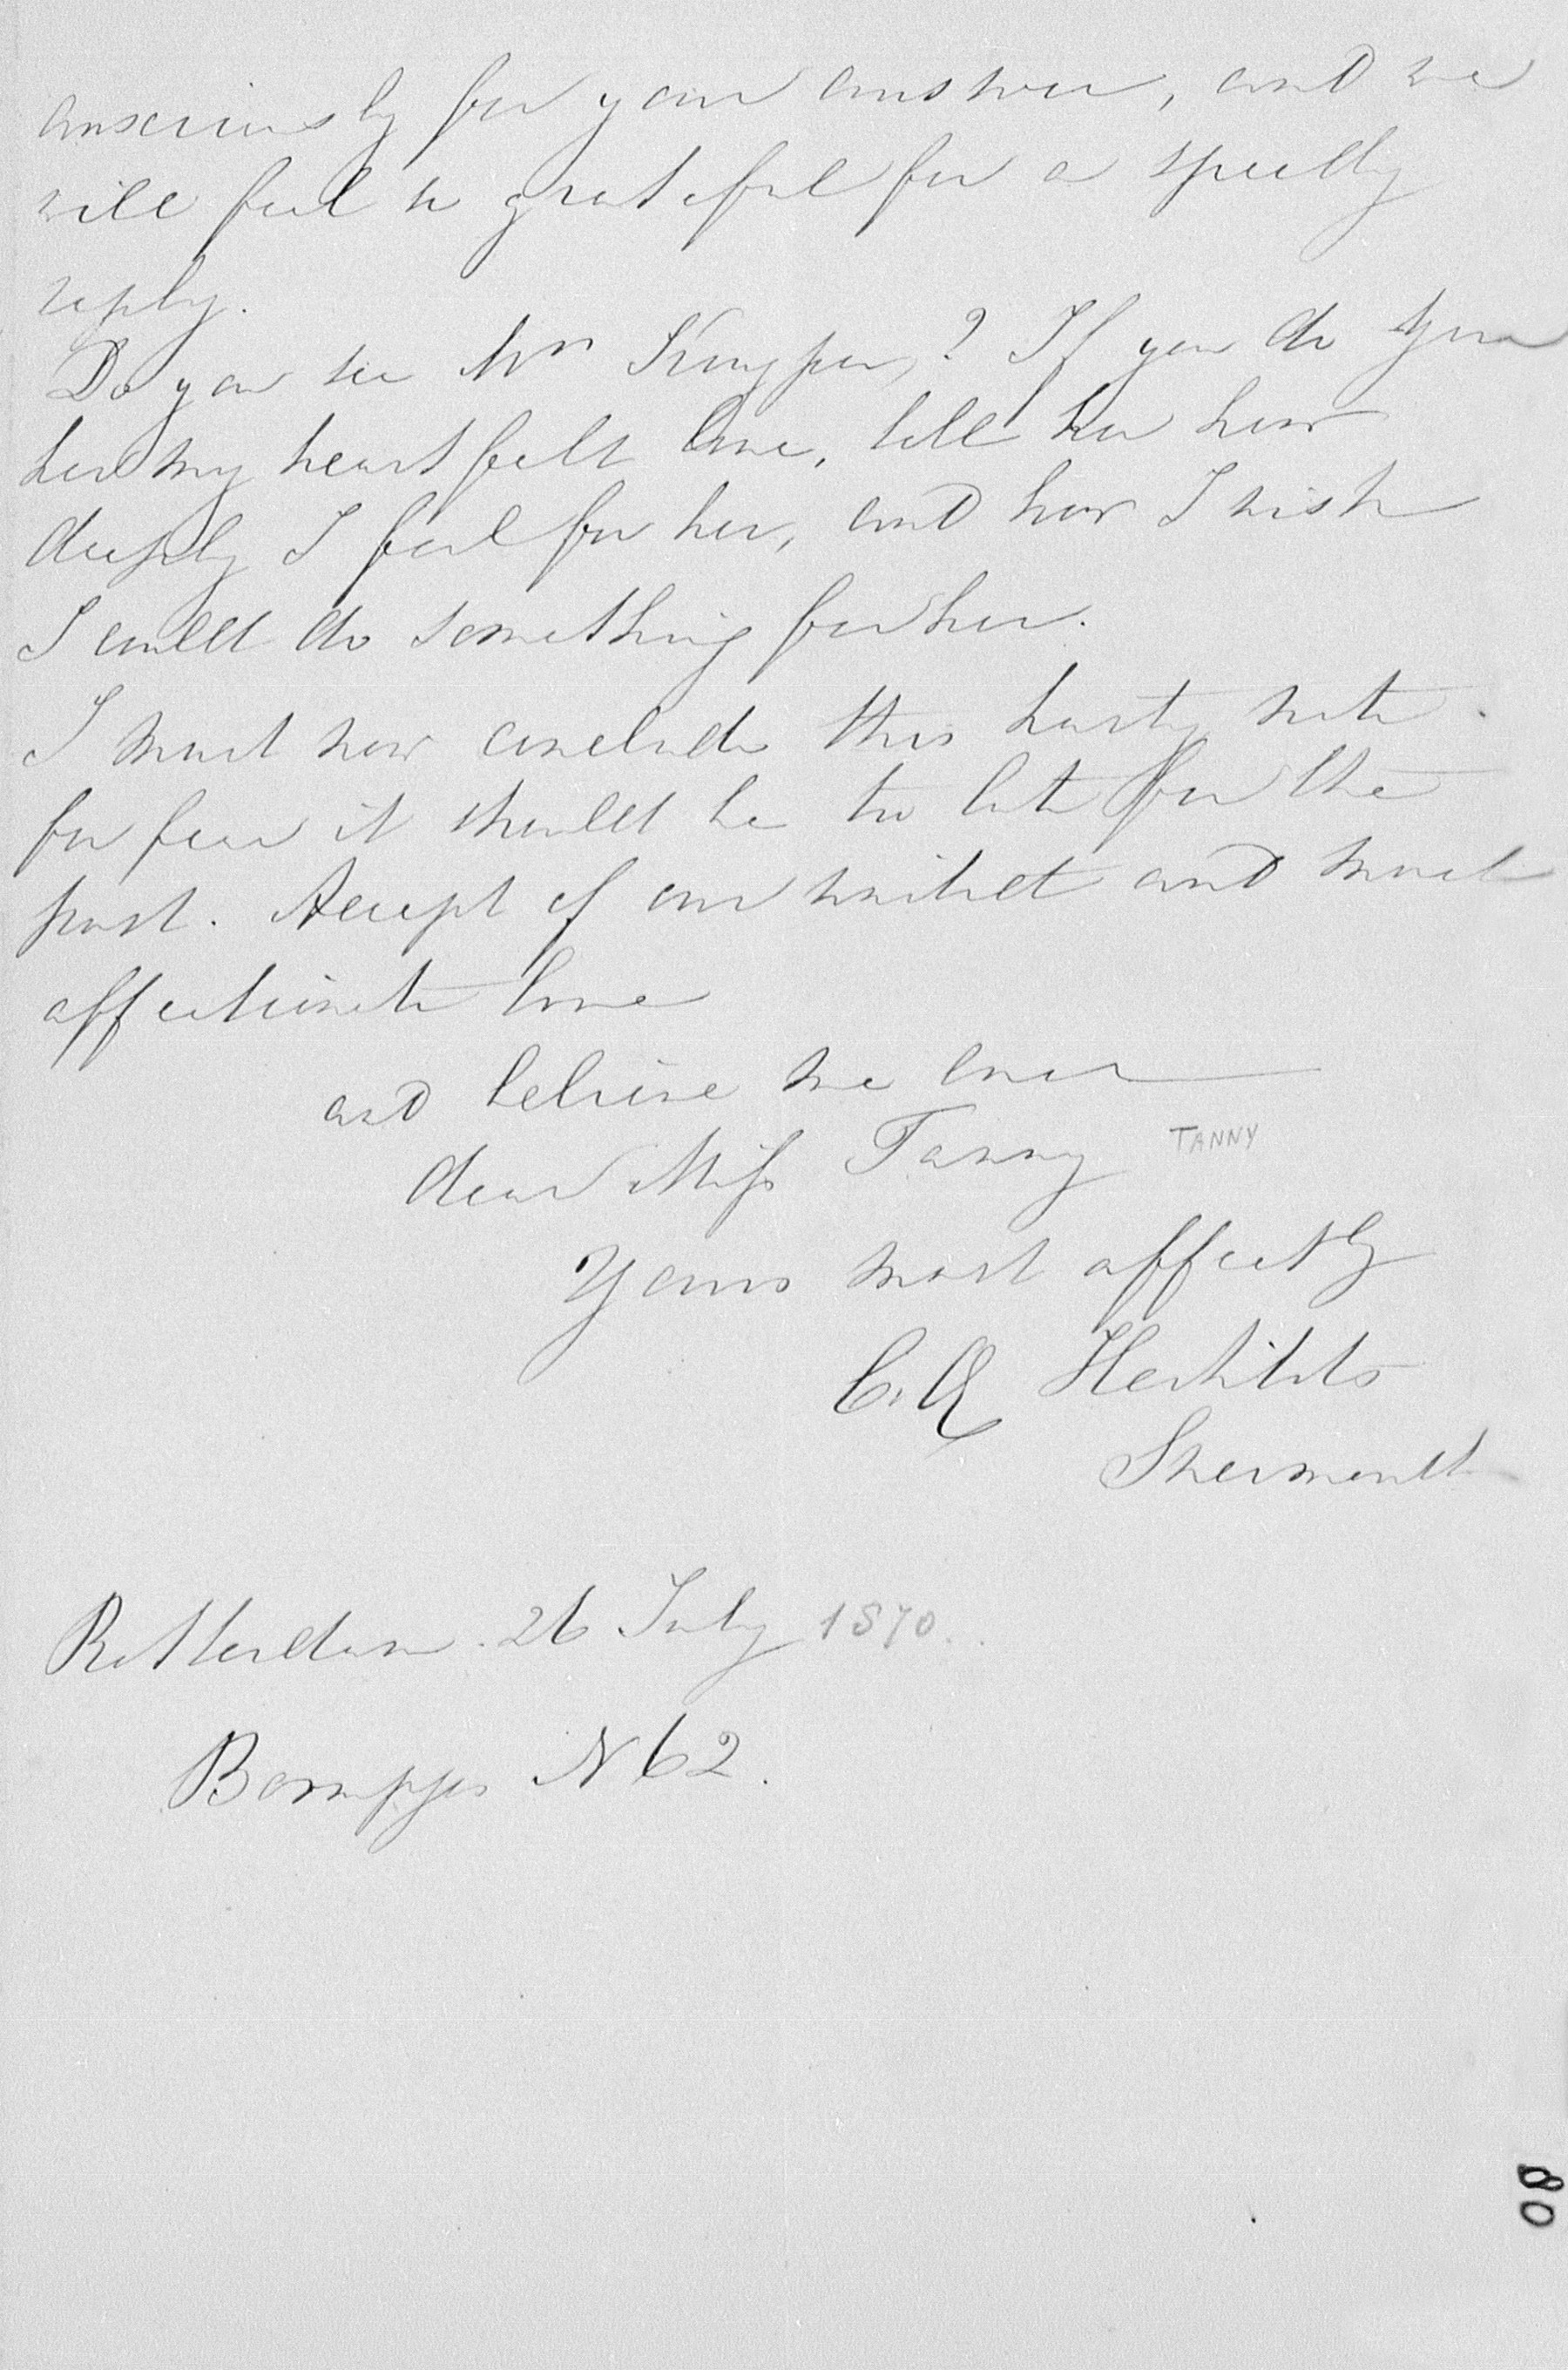 anxiously for your answer, and we
will feel so grateful for a speedy
reply.
Do you see Mrs Kuyper? If you do give
her my heartfelt love, tell her how
deeply I feel for her, and how I wish
I could do something for her.
I must now conclude this hasty note
for fear it should be too late for the
post. Accept of our united and most
affectionate love
and believe me ever
dear Miss Tanny TANNY
Yours most affectly
C. A.
Rotterdam. 26 July 1870.
Boompjes N 62.
80